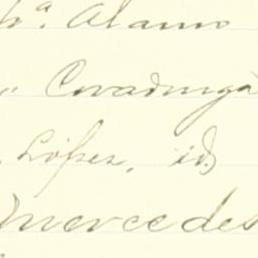 Alamo
" Covadunga
López, id.
Mercedes